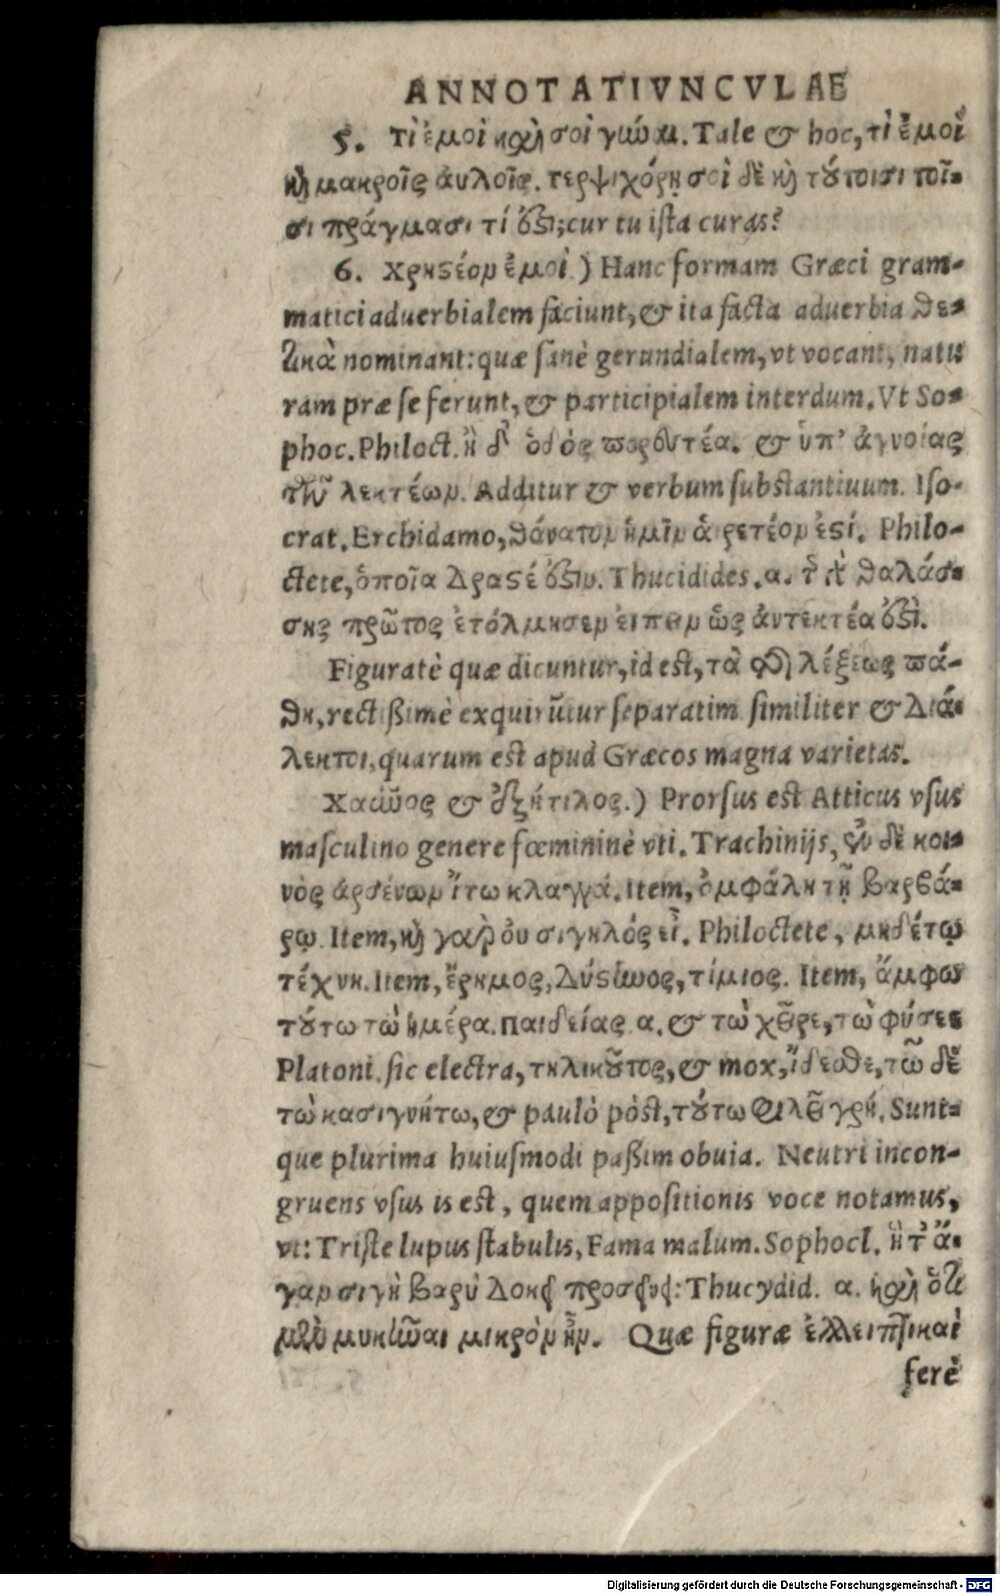 ANNOTATIVNCVLAE
5. τὶ ἐμοὶ καὶ σοὶ γύναι. Tale & hoc, τὶ ἐμοὶ
καὶ μακροῖς ἀυλοῖς. τερψιχόρῃ σοὶ δὲ καὶ τούτοισι τοῖ-
σι πράγμασι τί ὅστι; cur tu ista curas?
6. χρηστέον ἐμοὶ.) Hanc formam Græci gram-
matici aduerbialem faciunt, & ita facta aduerbia θε-
τικὰ nominant: quæ sanè gerundialem, vt vocant, natu
ram præ se ferunt, & participialem interdum. Vt So-
phoc. Philoct. ἡ δ' ὁδός πορευτέα. & ὑπ' ἀγνοίας
τῶν λεκτέων. Additur & verbum substantiuum. Iso-
crat. Erchidamo, θάνατον ἡμῖν ἁιρετέον ἐστί. Philo-
ctete, ὁποῖα δραστέ' ἐστιν. Thucidides. α. τῆς θαλάσ-
σης πρῶτος ἐτόλμησεν ἐιπεῖν ὡς ἀντεκτέα ἐστὶ.
Figuratè quæ dicuntur, id est, τὰ τῆς λέξεως πά-
θη, rectißimè exquirũtur separatim similiter & διά-
λεκτοι, quarum est apud Græcos magna varietas.
Prorsus est Atticus vsus
masculino genere fœmininè vti. Trachinijs, ἐν δὲ κοι-
νὸς ἀρσένων ἴτω κλαγγά. Item, ὀμφάλῃ τῇ βαρβά-
ρῳ. Item, καὶ γαρ ὀυ σιγηλός εἶ. Philoctete, μηδέτῳ
τέχνῃ. Item, ἔρημος, δύστηνος, τίμιος. Item, ἄμφω
τούτω τὼ ἡμέρα. παιδείας α. & τὼ χεῖρε, τὼ φύσεε
Platoni. sic electra, τηλικοῦτος, & mox, ἴδεσθε, τὼ δὲ
τὼ κασιγνήτω, & paulò pòst, τούτω φιλεῖν χρή. Sunt-
que plurima huiusmodi paßim obuia. Neutri incon-
gruens vsus is est, quem appositionis voce notamus,
vt: Triste lupus stabulis, Fama malum. Sophocl. ἥ τ' ἄ-
γαν σιγὴ βαρὺ δοκεῖ προσεῖναι: Thucydid. α. καὶ ὅτι
μὲν μυκῆναι μικρὸν ἦν. Quæ figuræ ἐλλειπτικαὶ
ferè
Digitalisierung gefördert durch die Deutsche Forschungsgemeinschaft - DFG